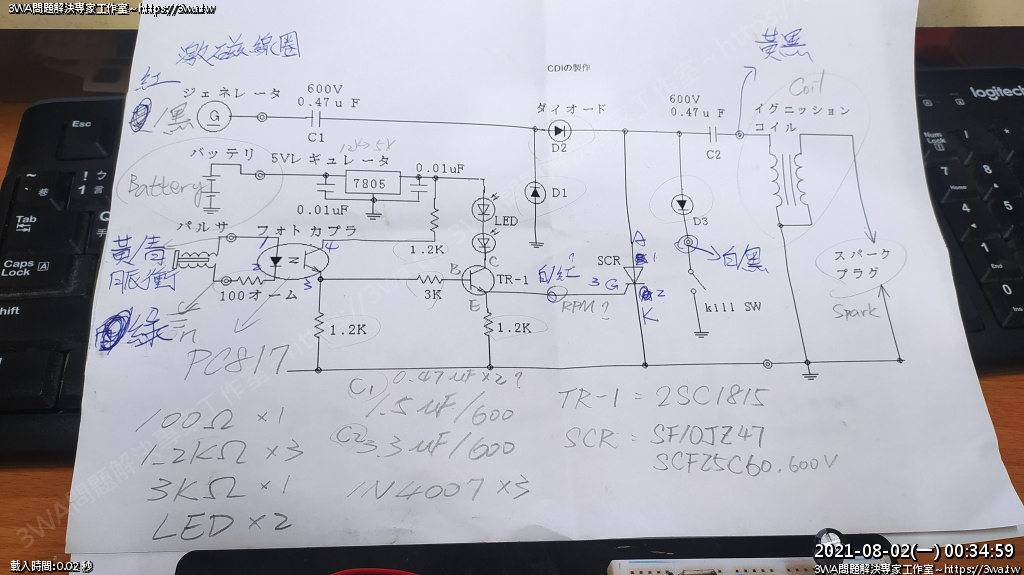 3WA問題解決專家工作室~https://3wa.tw
激磁線圈
黃黑
CDIの製作
紅
/黑
ジェネレータ
G
600V
0.47uF
C1
ダイオード
D2
600V
0.47uF
C2
Coil
イグニッション
コイル
バッテリ
Battery
5Vレギュレータ
12V→5V
7805
0.01uF
0.01uF
LED
D1
D3
パルサ
フォトカプラ
黃青
脈衝
綠
1
2
3
4
100オーム
1.2K
3K
1.2K
B
C
E
TR-1
1.2K
白/紅?
RPM?
SCR
A
1
3G
2
K
白黑
kill SW
スパーク
プラグ
Spark
PC817
C1 0.47uF×2?
1.5uF/600
C2 3.3uF/600
1N4007×3
100Ω×1
1.2KΩ×3
3KΩ×1
LED×2
TR-1=2SC1815
SCR=SF10JZ47
SCF25C60.600V
logitech
Esc
Tab
Caps
Lock
A
hift
Num
Lock
7
Home
4
1
End
0
Ins
載入時間:0.02 秒
2021-08-02(一) 00:34:59
3WA問題解決專家工作室~https://3wa.tw